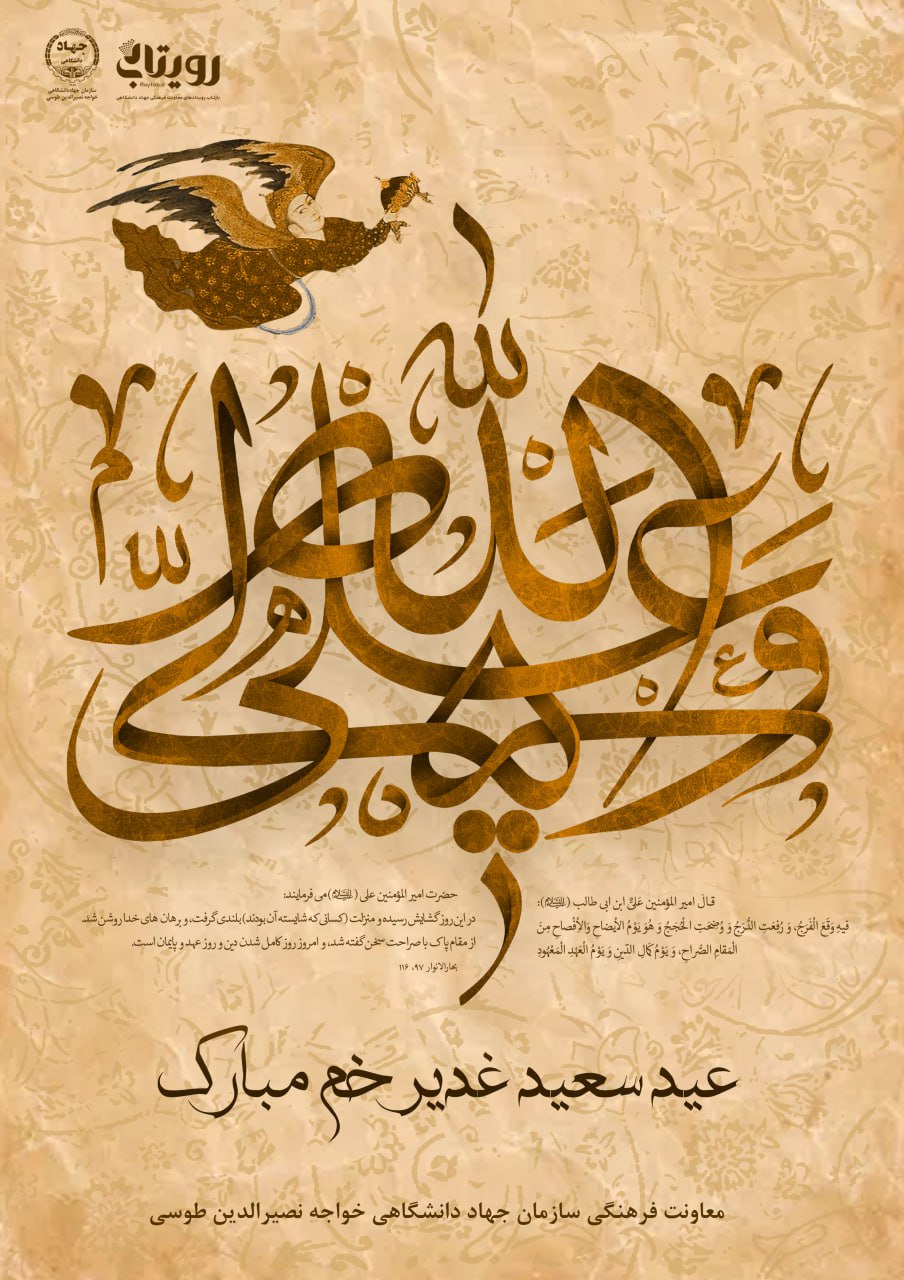 جهاد
دانشگاهی
سازمان جهاددانشگاهی
خواجه نصیرالدین طوسی
رویتاب
Roytab.ir
بازتاب رویدادهای معاونت فرهنگی جهاد دانشگاهی
قالَ امیر المؤمنین عَلیٌّ ابن ابی طالب (علیه‌السلام):
فیهِ وَقَعَ الْفَرَجُ، وَ رُفِعَتِ الدَّرَجُ وَ وُضِحَتِ الْحُجَجُ وَ هُوَ یَوْمُ الْایضاحِ وَالْاِفْصاحِ مِنَ
الْمَقامِ الصُّراحِ، وَ یَوْمُ کَمالِ الدّینِ وَ یَوْمُ الْعَهْدِ الْمَعْهُودِ
حضرت امیر المؤمنین علی (علیه‌السلام) می فرمایند:
در این روز گشایش رسیده و منزلت (کسانی که شایسته آن بودند) بلندی گرفت، و برهان های خدا روشن شد.
از مقام پاک با صراحت سخن گفته شد، و امروز روز کامل شدن دین و روز عهد و پایمان است.
بحارالانوار ۹۷، ۱۱۶
عید سعید غدیر خم مبارک
معاونت فرهنگی سازمان جهاد دانشگاهی خواجه نصیرالدین طوسی